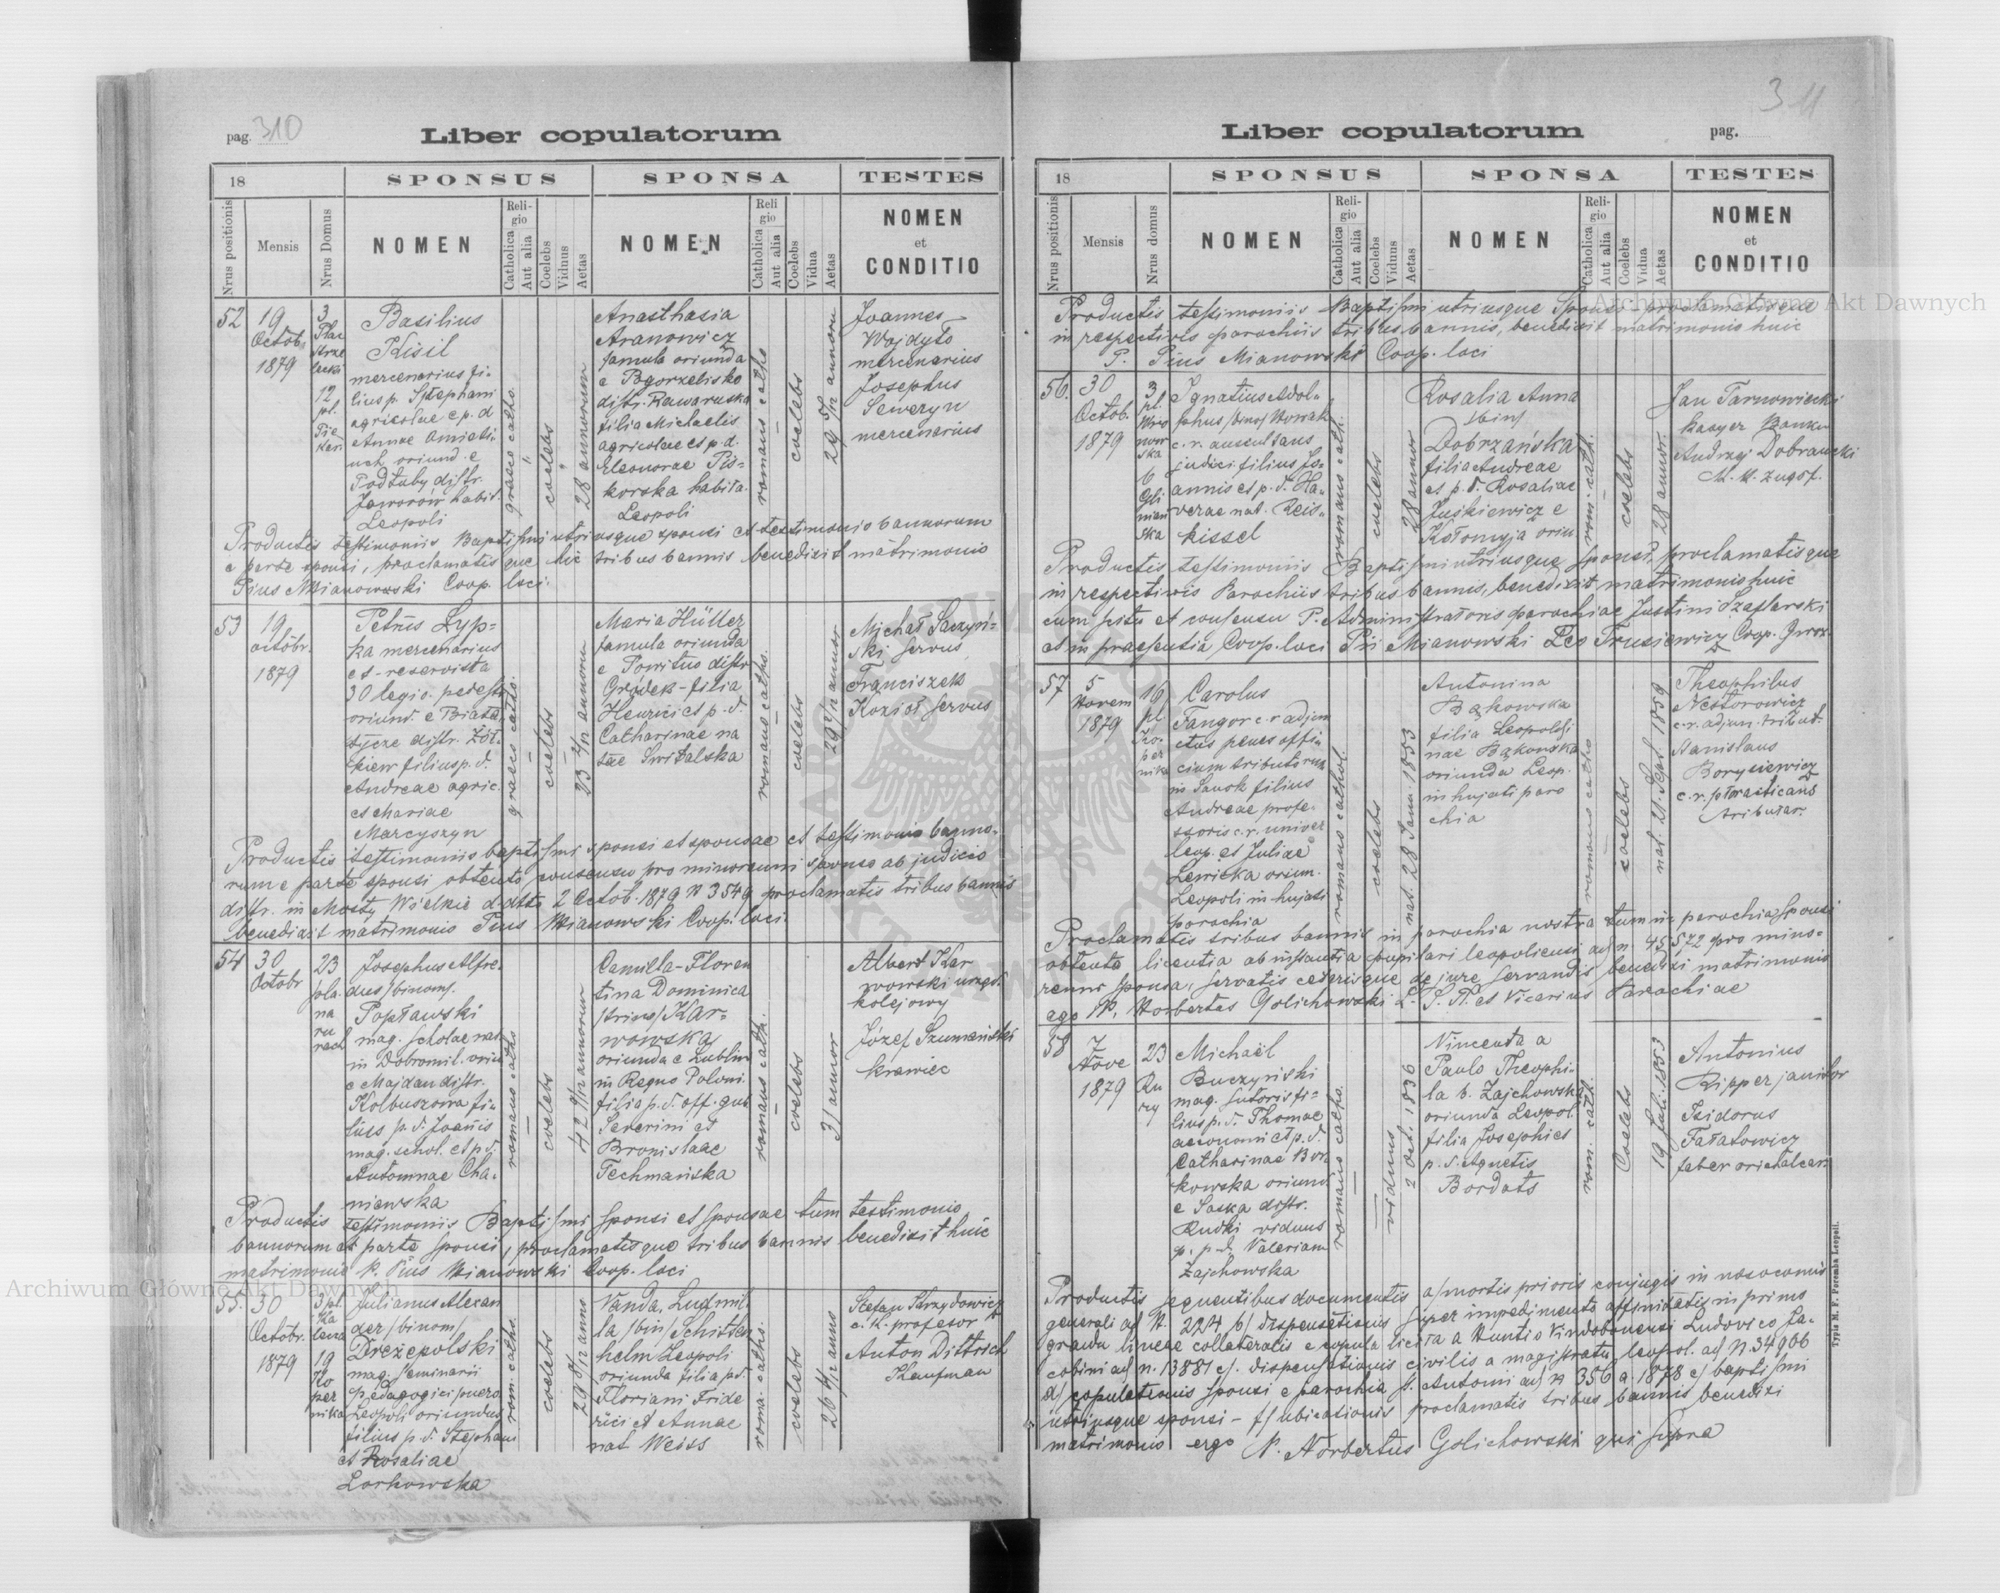 pag. 310
Liber copulatorum
18
SPONSUS
SPONSA
TESTES
Nrus positionis
Mensis
Nrus Domus
NOMEN
Religio
Catholica
Aut alia
Coelebs
Viduus
Aetas
NOMEN
Religio
Catholica
Aut alia
Coelebs
Vidua
Aetas
NOMEN
et
CONDITIO
52
19
Octob.
1879
3
12
pl.
Basilius
Kisil
mercenarius fi-
lius p. Stephani
agricolae e p. d
Annae
oriund. e
distr.
Jaworów habit.
Leopoli
graeco catho.
coelebs
28 annorum
Anasthasia
Aranowicz
famula oriunda
e Pogorzelisko
distr. Rawaruska
filia Michaelis
agricolae et p. d.
Eleonorae Pis-
korska habita.
Leopoli
romano catho
coelebs
Joannes
Wajdyło
mercenarius
Josephus
Seweryn
mercenarius
Productis testimoniis Baptismi utriusque sponsi et testimonio bannorum
e parte sponsi, proclamatisque hic tribus bannis benedixit matrimonio
Pius Mianowski Coop. loci.
53
19
octobr.
1879
Petrus Łyp-
ka mercenarius
et reservista
30 legio. pedestr
oriund. e
distr. Żół-
kiew filius p. d.
Andreae agric.
et Mariae
Marcyszyn
graeco catho.
coelebs
Maria Hüller
famula oriunda
e
distr.
Gródek - filia
Henrici et p. d.
Catharinae na
tae Świtalska
romano catho.
coelebs
Michał
servus
Franciszek
Kozioł servus
Productis testimoniis baptismi sponsi et sponsae et testimonio banno-
rum e parte sponsi obtento consensu pro minorenni sponso ab judicio
distr. in Mosty Wielkie d dtto 2 Octob. 1879 N 3549 proclamatis tribus bannis
benedixit matrimonio Pius Mianowski Coop. loci.
54
30
Octobr
23
Josephus Alfre-
dus /binom/.
Popławski
mag. scholae
in Dobromil. oriu
e Majdan distr.
Kolbuszowa fi-
lius p. d. Joanis
mag. schol. et p. d.
Antoninae Cha-
niewska
romano catho
coelebs
42 annorum
Camilla - Floren
tina Dominica
/trino/ Kar-
wowska
oriunda e Lublin
in Regno Poloni.
filia p. d. off. gub
Severini et
Bronislaae
Techmańska
romano cath.
coelebs
31 annor
Albert Kar
wowski urzęd.
kolejowy
Józef Szumański
krawiec
Productis testimoniis Baptismi sponsi et sponsae tum testimonio
bannorum et parte sponsi, proclamatisque tribus bannis benedixit huic
matrimonio P. Pius Mianowski Coop. loci
55.
30
Octobr.
1879
3 pl.
19
Julianus Alexan
der /binom/
Drezepolski
mag. seminarii
pedagogici puero.
Leopoli oriundus
filius p. d. Stephani
et Rosaliae
Lorkowska
rom. catho.
coelebs
Vanda, Ludmil-
la /bin/ Schitten
helm Leopoli
oriunda filia p. d.
Floriani Fride
rici et Annae
nat Weiss
roma. catho.
coelebs
Stefan Krzydowicz
c. k. profesor
Anton Dittrich
Kaufman
311
Liber copulatorum
pag.
18
SPONSUS
SPONSA
TESTES
Nrus positionis
Mensis
Nrus domus
NOMEN
Religio
Catholica
Aut alia
Coelebs
Viduus
Aetas
NOMEN
Religio
Catholica
Aut alia
Coelebs
Vidua
Aetas
NOMEN
et
CONDITIO
Productis testimoniis Baptismi utriusque Sponsi - proclamatisque
in respectivis parochiis tribus bannis, benedixit matrimonio huic
P. Pius Mianowski Coop. loci
56.
30
Octob.
1879
3
pl.
6
Ignatius Adol-
phus /bino/ Nowak
c. r. auscultans
judici filius Jo-
annis et p. d. Xa-
verae nat. Reis-
kissel
romano cath.
coelebs
28 annor
Rosalia Anna
/bin/
Dobrzańska
filia Andreae
et p. d. Rosaliae
Juśkiewicz e
Kołomyja oriu.
rom. cath.
coelebs
28 annor.
Jan Tarnowiecki
kasyer Banku
Andrzej Dobrzański
Productis testimoniis Baptismi utriusque sponsi, proclamatisque
in respectivis Parochiis tribus bannis, benedixit matrimonio huic
cum scitu et consensu P. Administratoris parochiae Justini Szaflarski
et in praesentia Coop. loci Pii Mianowski Leo Trusiewicz Coop.
57
5
Novem
1879
16
pl.
Ko-
per
nika
Carolus
Fangor c. r adjun
ctus penes offi-
cium tributorum
in Sanok filius
Andreae profe-
ssoris c. r. univer
leop. et Juliae
Lewicka oriun.
Leopoli in hujati
parochia
romano cathol.
coelebs
nat. 28 Janu. 1853
Antonina
Bąkowska
filia Leopoldi
nae Bąkowska
oriunda Leop.
in hujati paro
chia
romano catho
coelebs
nat. 21. Sept. 1859
Theophilus
Nestorowicz
c. r. adjun. tribut.
Stanislaus
Borysiewicz
c. r. practicans
tributar.
Proclamatis tribus bannis in parochia nostra tum in parochia sponsi
obtenta licentia ab instantia pupilari leopoliensi ad n. 45572 pro mino-
renni sponsa, servatis ceterisque de jure servandis benedixi matrimonio
ego P. Norbertus Golichowski L. S. Th. et Vicarius Parochiae
58
7
Nove
1879
23
Ru
ry
Michaël
Buczyński
mag. sutoris fi-
lius p. d. Thomae
aeconomi et p. d.
Catharinae Bor
kowska oriund.
e Saska distr.
Rudki viduus
p. p. d. Valeriam
Zajchowska
romano catho.
viduus
2 oct. 1836
Vincenta a
Paulo Theophi-
la b. Zajchowska
oriunda Leopol.
filia Josephi et
p. d. Agnetis
Bordats
rom. cath.
Coelebs
19 Juli. 1853
Antonius
Ripper janitor
Isidorus
Fałatowicz
faber orichalcar.
Productis sequentibus documentis a/ mortis prioris conjugis in nosocomio
generali ad N. 2214 b/ dispensationis super impedimento affinitatis in primo
gradu lineae collateralis e copula licita a Nuntio Vindobonensi Ludovico Ja-
cobini ad n. 13881 c/. dispensationis civilis a magistratu leopol. ad N. 34906
d/ copulationis sponsi e parochia s. Antonii ad N 356 a. 1878 e/ baptismi
utriusque sponsi - f/ ubicationis proclamatis tribus bannis benedixi
matrimonio ergo P. Norbertus Golichowski qui supra
Typis M. F. Poremba Leopoli.
Archiwum Główne Akt Dawnych
Archiwum Główne Akt Dawnych